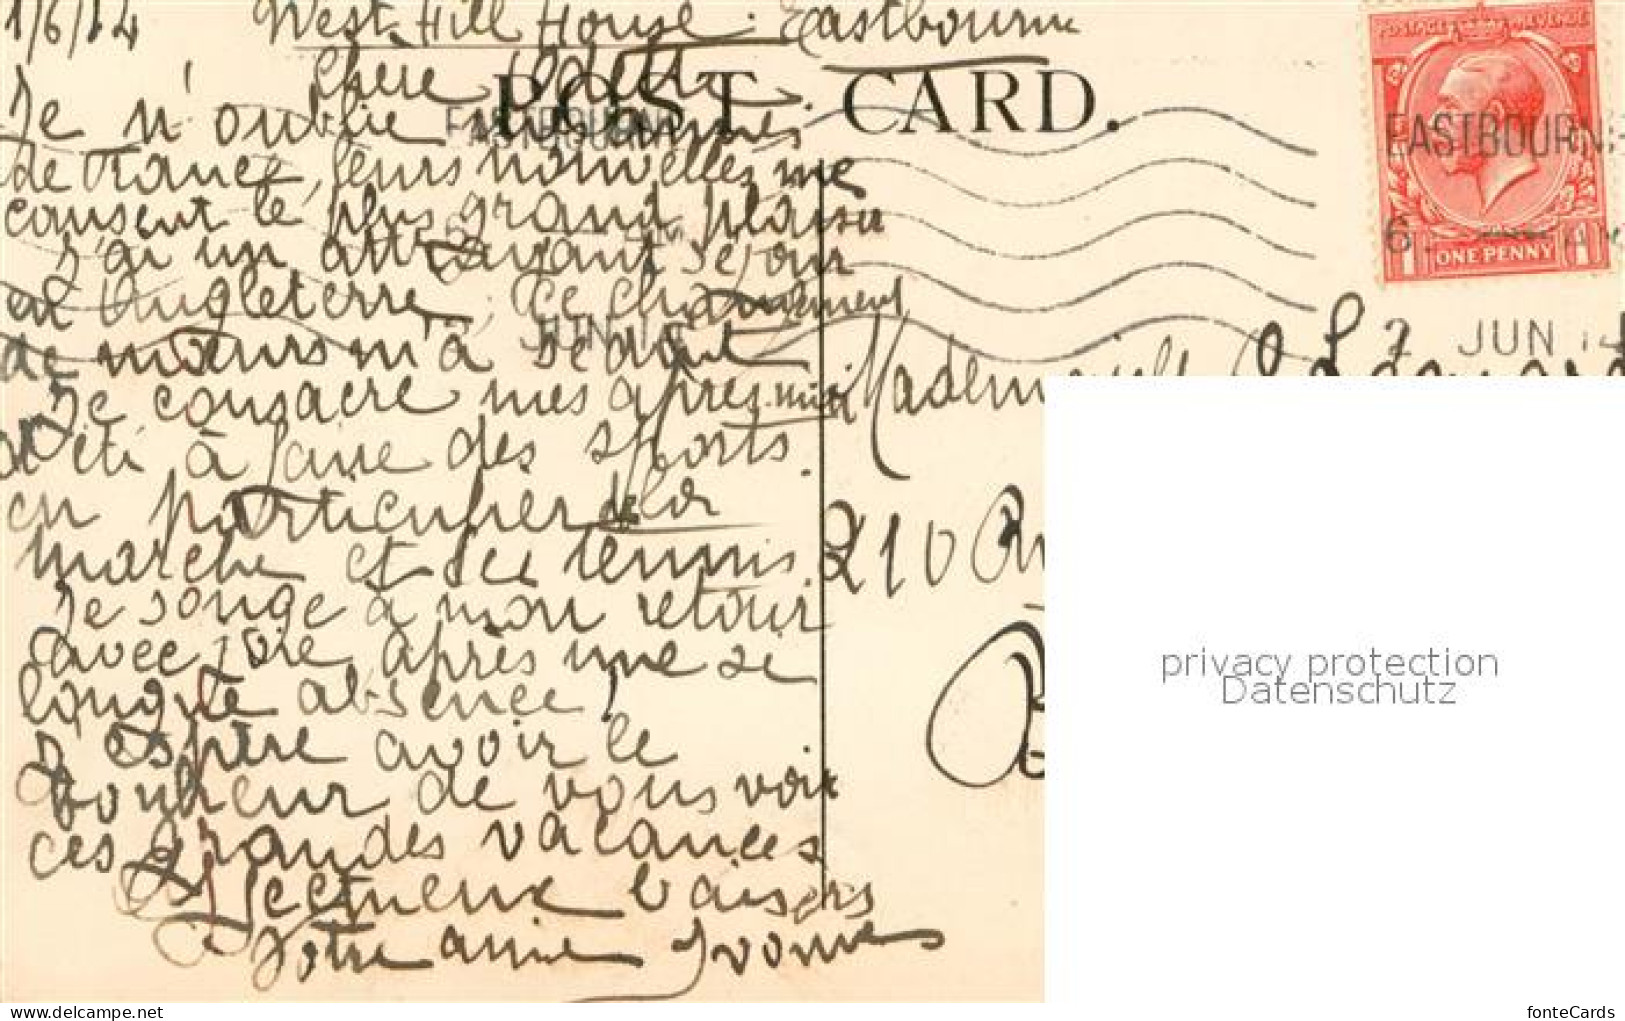 1/6/14 West Hill House. Eastbourne
Chère Odette
POST CARD.
Je n'oublie mes amies
de France, leurs nouvelles me
causent le plus grand plaisir
J'ai un attrayant séjour
en Angleterre, ce changement
de mœurs m'a séduit
Je consacre mes après-midi
d'été à faire des sports.
en particulier de la
marche et du tennis.
Je songe à mon retour
avec joie après une si
longue absence!
J'espère avoir le
bonheur de vous voir
ces grandes vacances
Affectueux baisers
Votre amie Yvonne
POSTAGE REVENUE
EASTBOURNE
6
1 ONE PENNY 1
2 JUN 14
EASTBOURNE
JUN 14
Mademoiselle
210
privacy protection
Datenschutz
my-island.com
fonteCards